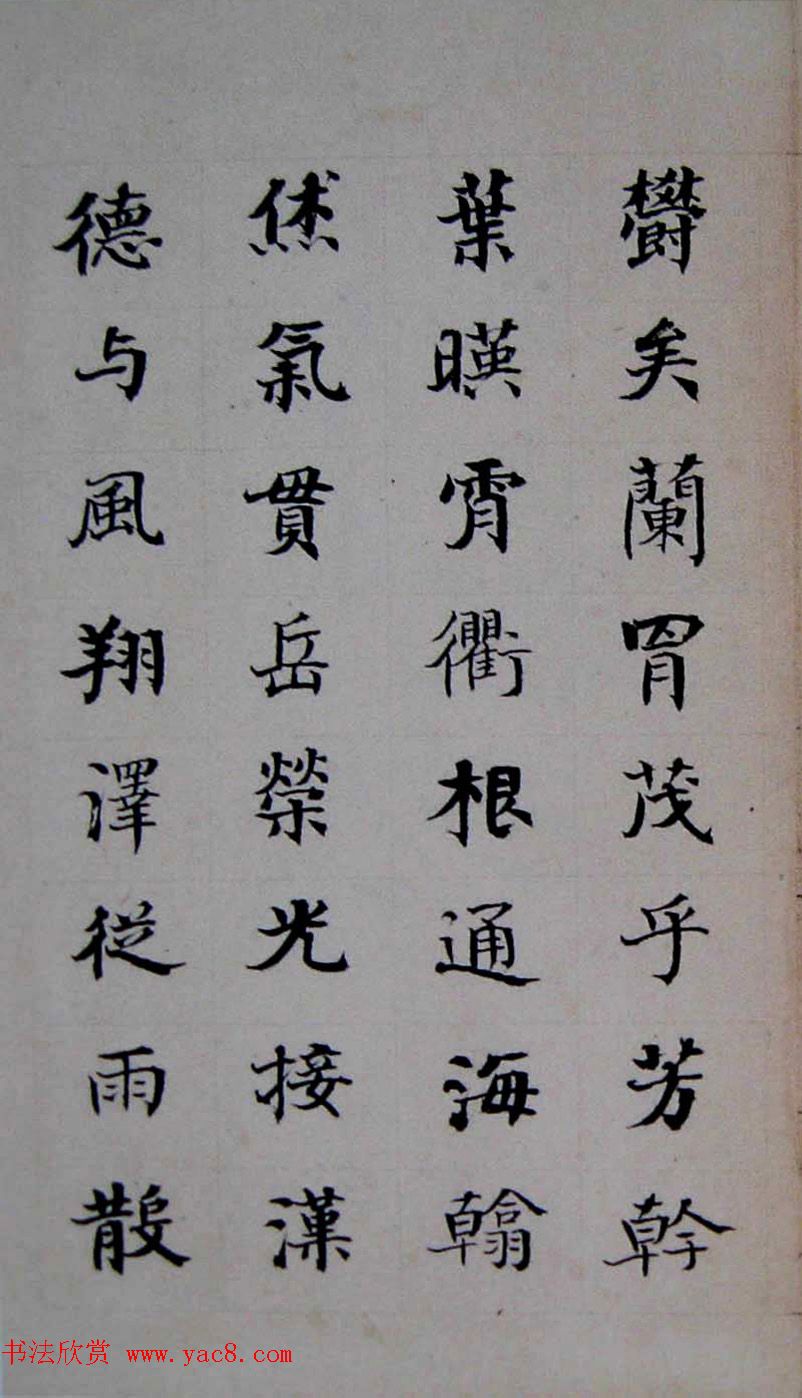 欝矣蘭胄茂乎芳幹
葉暎霄衢根通海翰
烋氣貫岳榮光接漢
德与風翔澤従雨散
书法欣赏 www.yac8.com